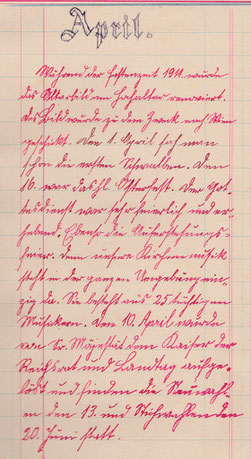 April.
Während der Fastenzeit 1911 wurde
das Altarbild am Hochaltar renoviert.
Das Bild wurde zu dem Zweck nach Wien
geschickt. Den 1. April sah man
schon die ersten Schwalben. Den
16. war das hl. Osterfest. Der Got-
tesdienst war sehr feierlich und er-
hebend. Ebenso die Auferstehungs-
feier. Denn unsere Kirchenmusik
steht in der ganzen Umgebung ein-
zig da. Sie besteht aus 25 tüchtigen
Musikern. Den 10. April wurde
von Sr. Majestät dem Kaiser der
Reichsrat und Landtag aufge-
löst und finden die Neuwah-
len den 13. und Stichwahlen den
20. Juni statt.